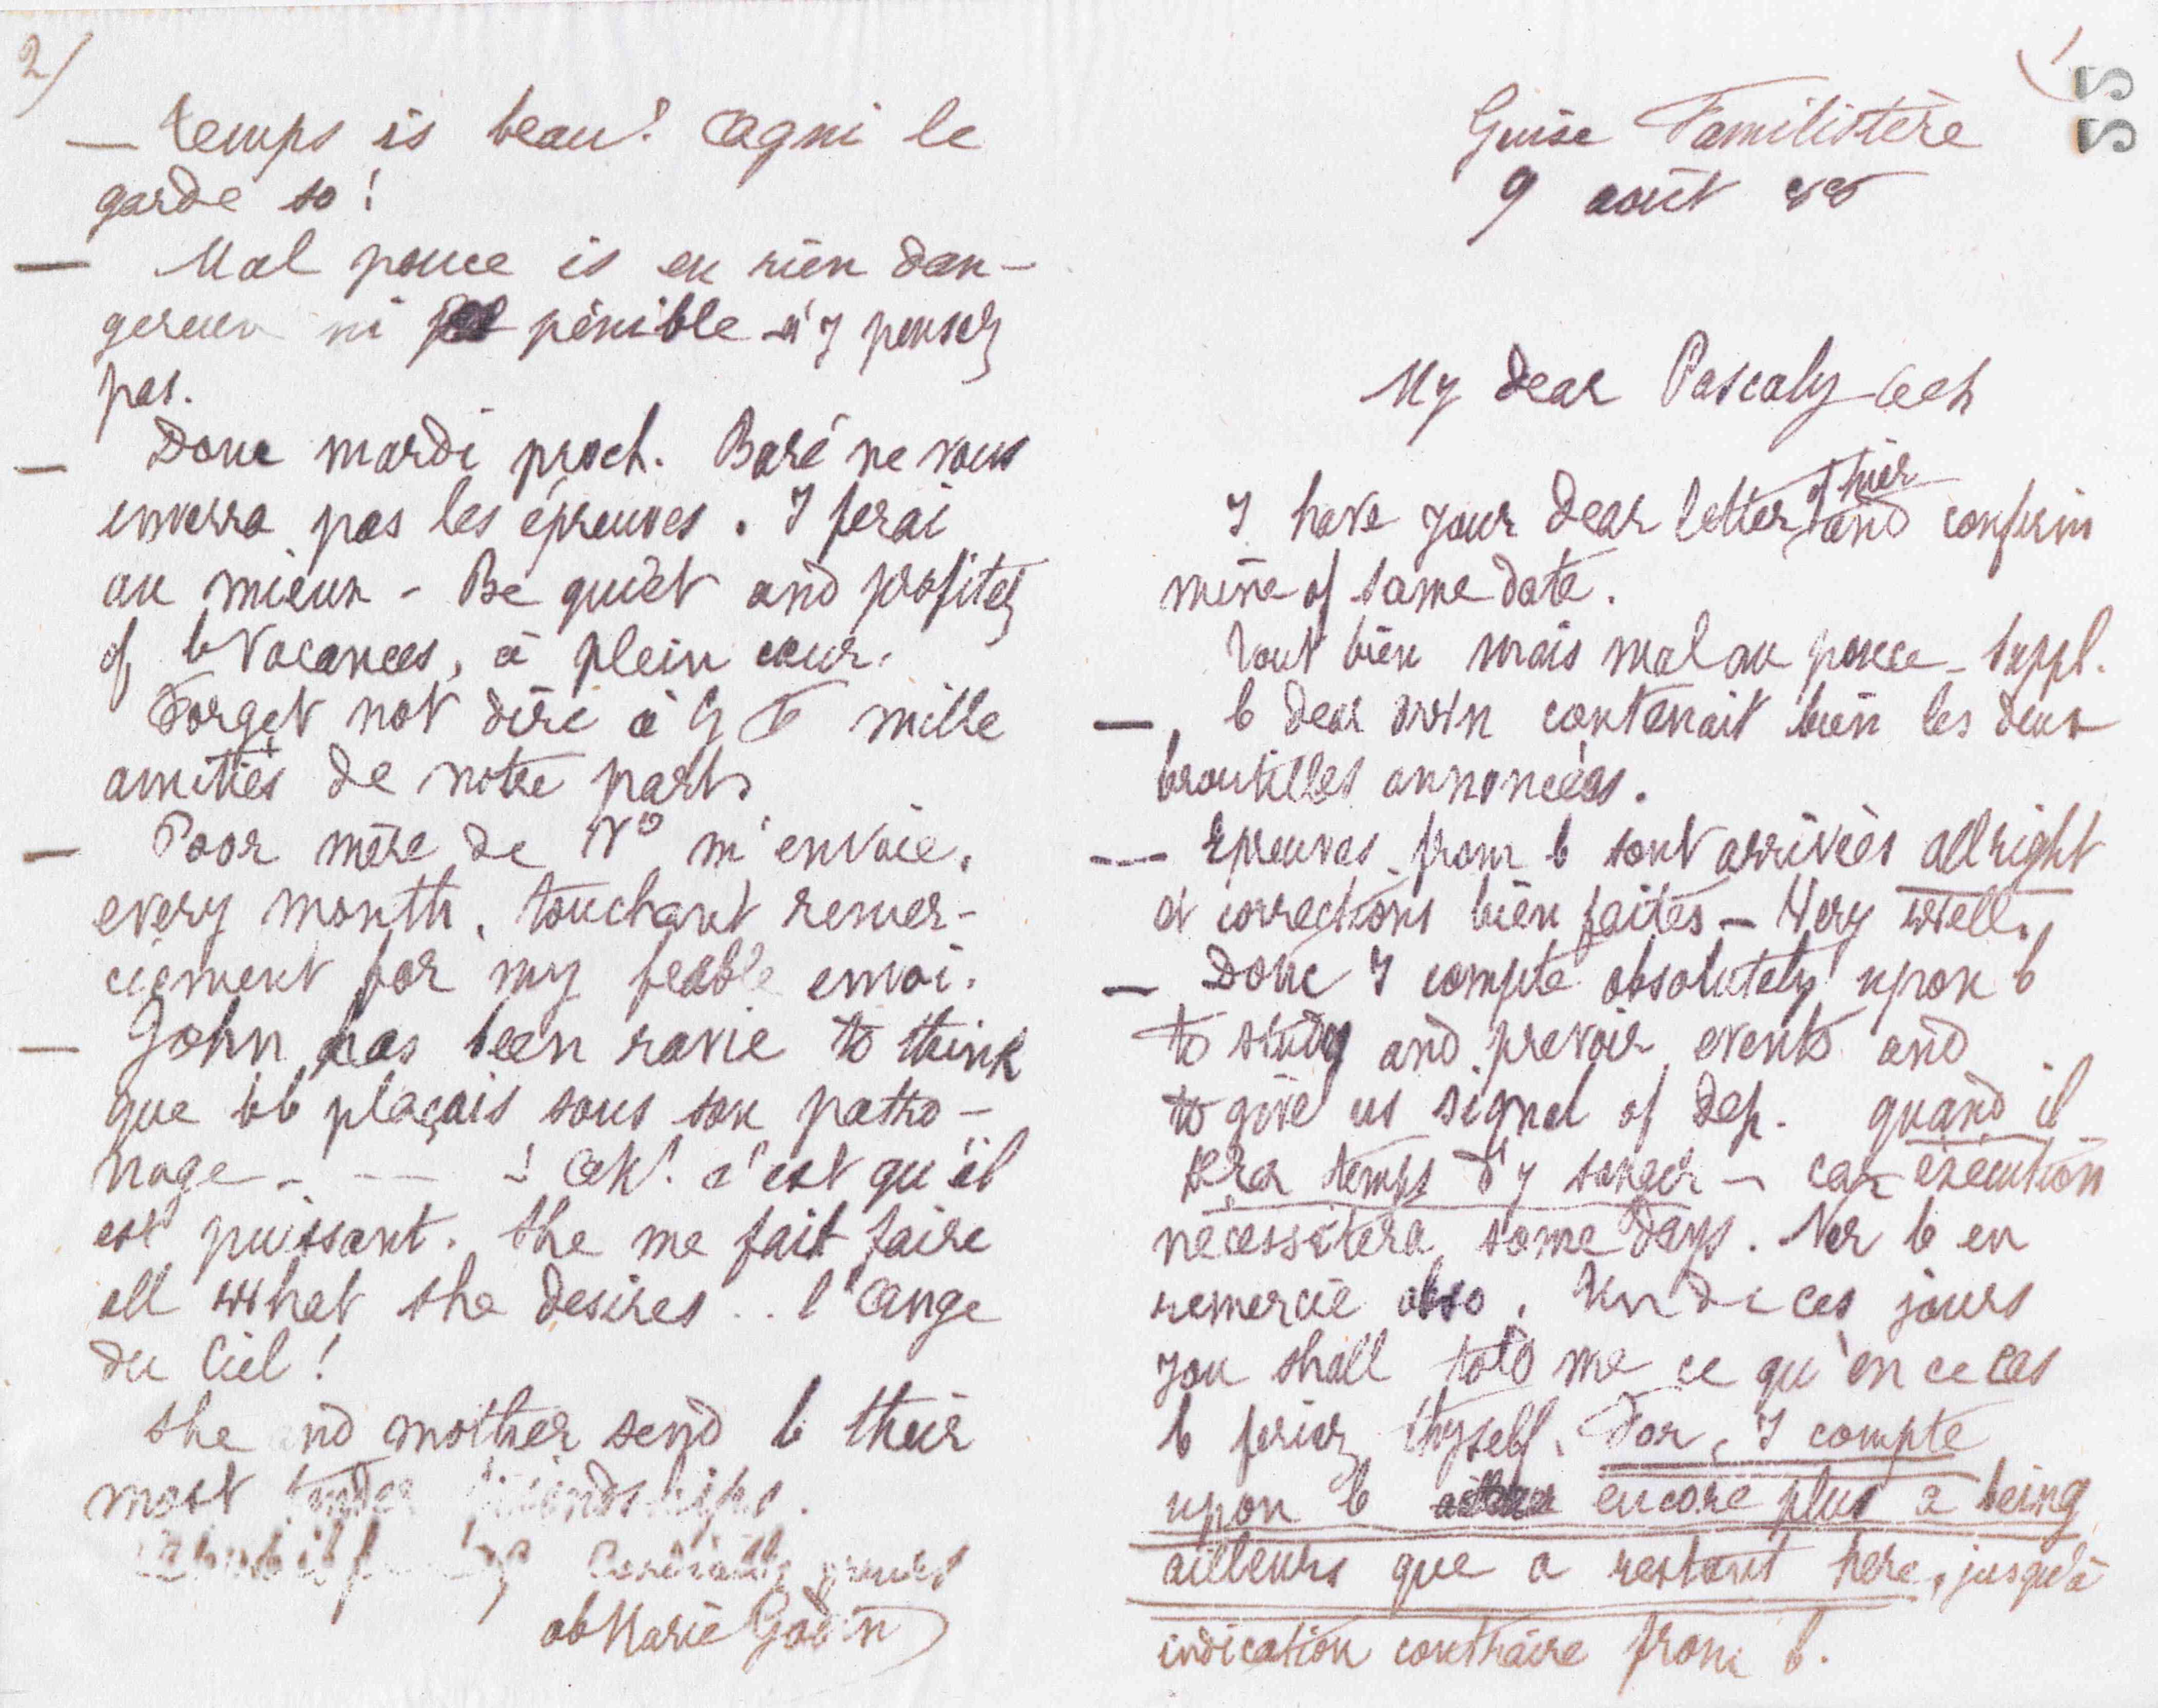 55
Guise Familistère
9 août 88
My dear Pascaly
I have your dear letter of hier and confirm
mine of same date.
Tout bien mais mal au pouce. Suppl.
— b dear contenait bien les deux
broutilles annoncées.
— Epreuves from b sont arrivées allright
et corrections bien faites — Very well.
— Donc I compte absolutely upon b
to study and prevoir events and
to give us signal of dep. quand il
sera temps d'y songer — car exécution
nécessitera some days. Ner b en
remercie abso. Un de ces jours
you shall told me ce qu'en ce cas
b feriez thyself. For, I compte
upon b encore plus a being
ailleurs que a restant here, jusqu'à
indication contraire from b.
2/
— temps is beau! Agni le
garde so!
— Mal pouce is en rien dan-
gereux ni pénible n'y pensez
pas.
— Donc mardi proch. Baré ne vous
enverra pas les épreuves. I ferai
au mieux - Be quiet and profitez
of b vacances, à plein cœur.
Forget not dire à G F mille
amitiés de notre part.
— Poor mère de Nº m'envoie,
every month, touchant remer-
ciement for my feable envoi.
— John has been ravie to think
que bb plaçais sous son patro-
nage - - - ! Ah! c'est qu'il
est puissant. She me fait faire
all what she desires .. l'Ange
du Ciel!
She and mother send b their
most tender friendships.
Cordially yours
Marie Godin